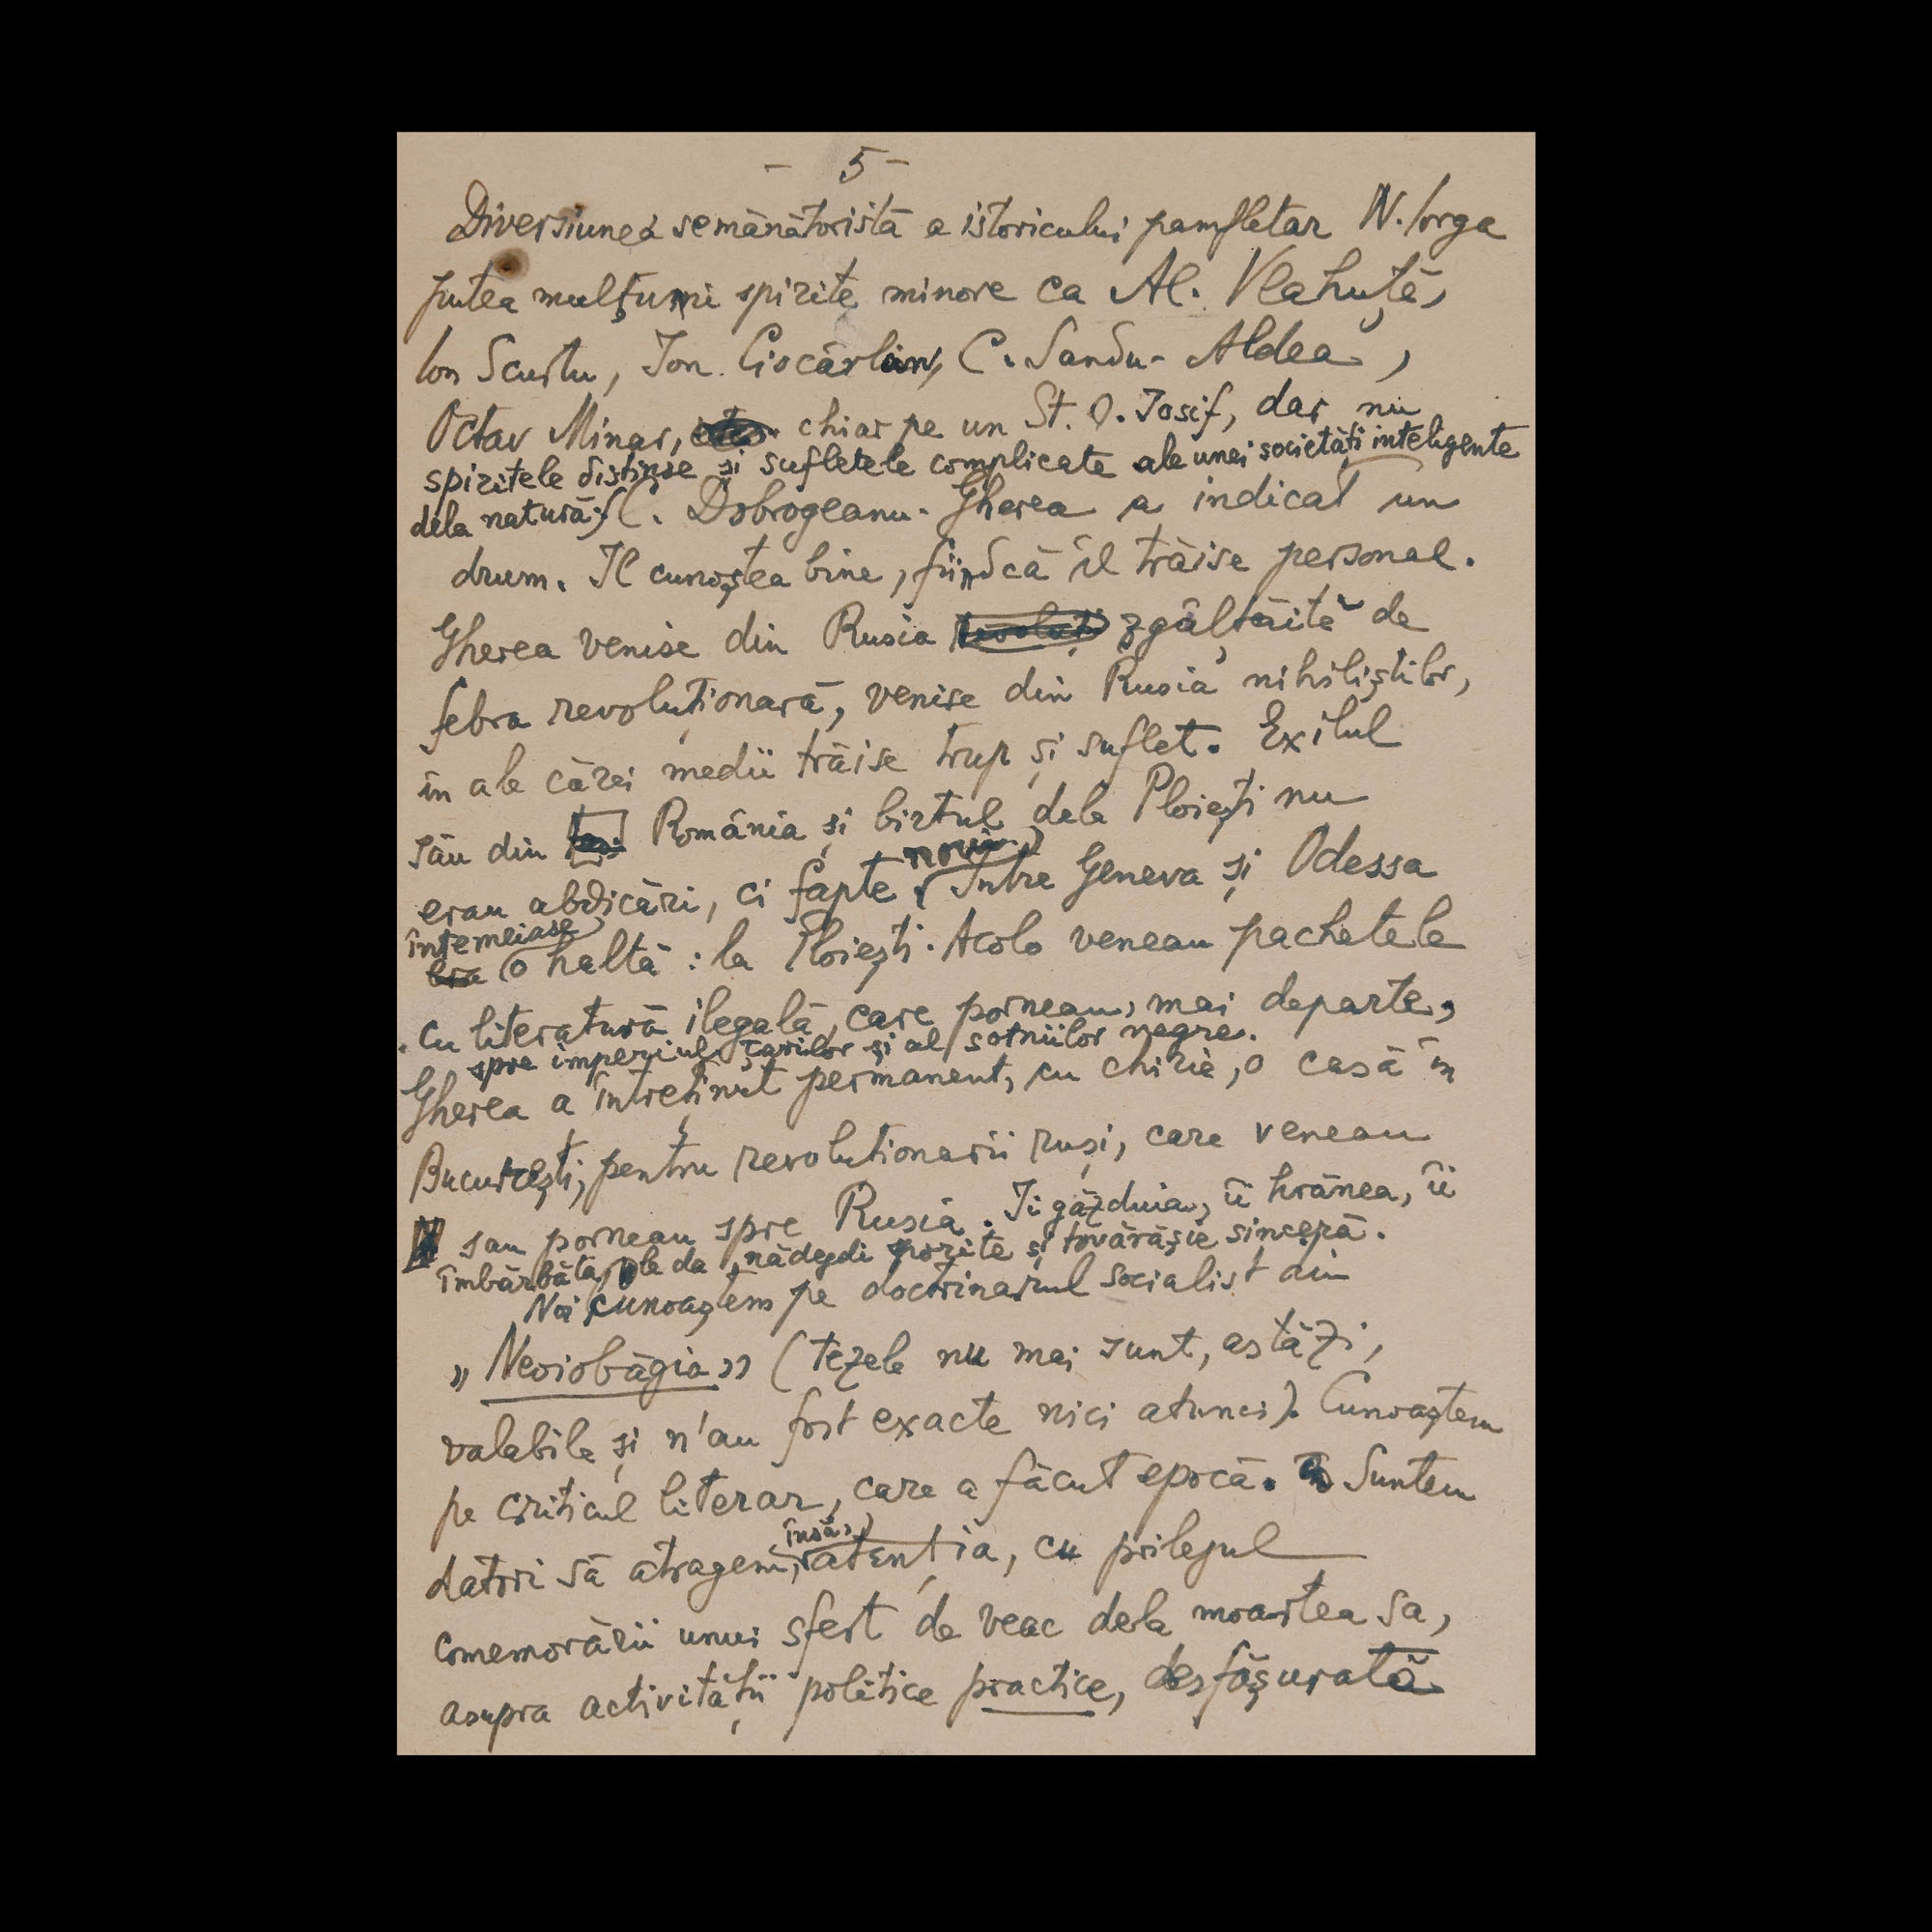 - 5 -
Diversiunea semănătoristă a istoricului pamfletar N. Iorga
putea mulțumi spirite minore ca Al. Vlahuță,
Ion Scurtu, Ion Ciocârlan, C. Sandu-Aldea,
Octav Minar, chiar pe un St. O. Iosif, dar nu
spiritele distinse și sufletele complicate ale unei societăți inteligente
dela natură. C. Dobrogeanu-Gherea a indicat un
drum. Il cunoștea bine, fiindcă îl trăise personal.
Gherea venise din Rusia zgâlțăită de
febra revoluționară, venise din Rusia nihiliștilor,
în ale cărei medii trăise trup și suflet. Exilul
său din România și birtul dela Ploiești nu
erau abdicări, ci fapte noui. Intre Geneva și Odessa
întemeiase o haltă: la Ploiești. Acolo veneau pachetele
cu literatură ilegală, care porneau, mai departe,
spre imperiul țarilor și al sotniilor negre.
Gherea a întreținut permanent, cu chirie, o casă în
București, pentru revoluționarii ruși, care veneau
sau porneau spre Rusia. Ii găzduia, îi hrănea, îi
îmbărbăta, le da nădejdi sporite și tovărășie sinceră.
Noi cunoaștem pe doctrinarul socialist din
„Neoiobăgia” (tezele nu mai sunt, astăzi,
valabile și n'au fost exacte nici atunci). Cunoaștem
pe criticul literar, care a făcut epocă. Suntem
datori să atragem, însă, atenția, cu prilejul
comemorării unui sfert de veac dela moartea sa,
asupra activității politice practice, desfășurată